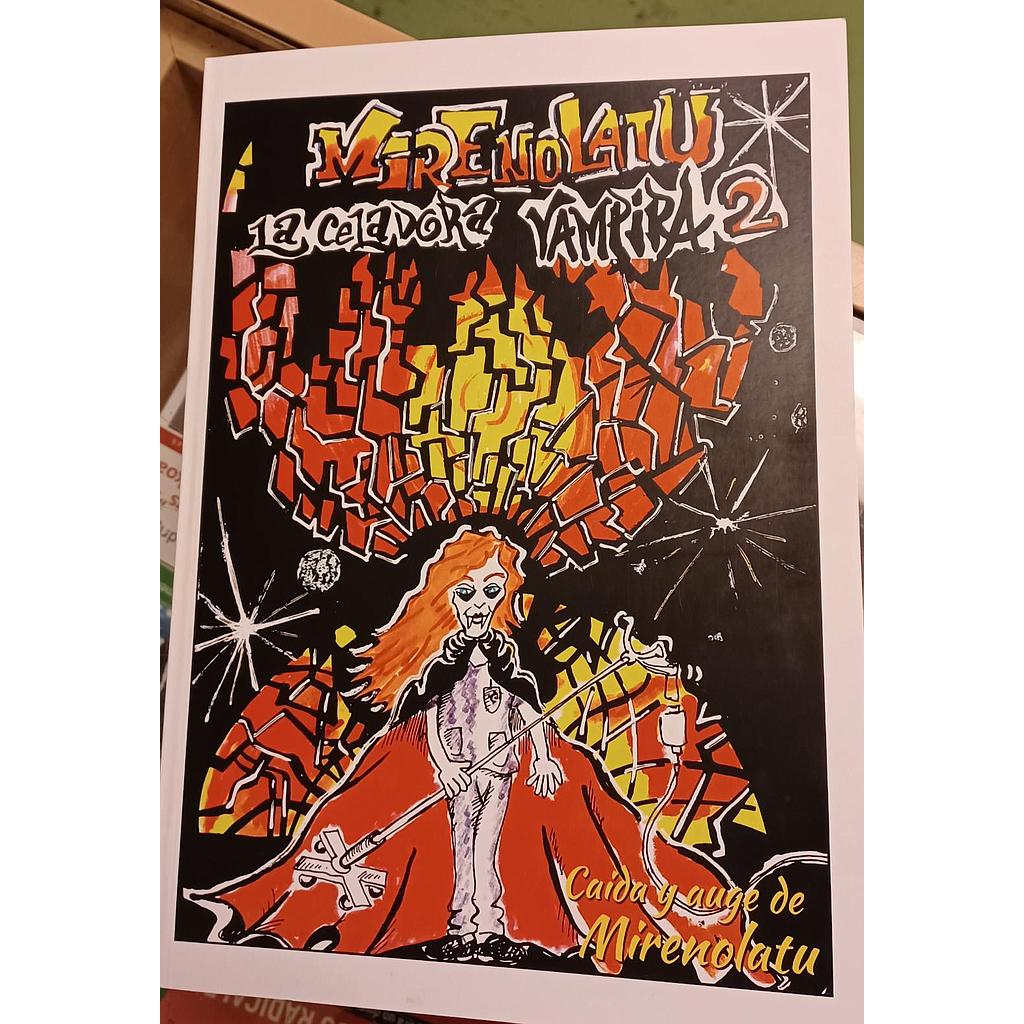 MIRENOLATU
La CeLADORa VAMPiRA 2
Caída y auge de
Mirenolatu
RADICAL